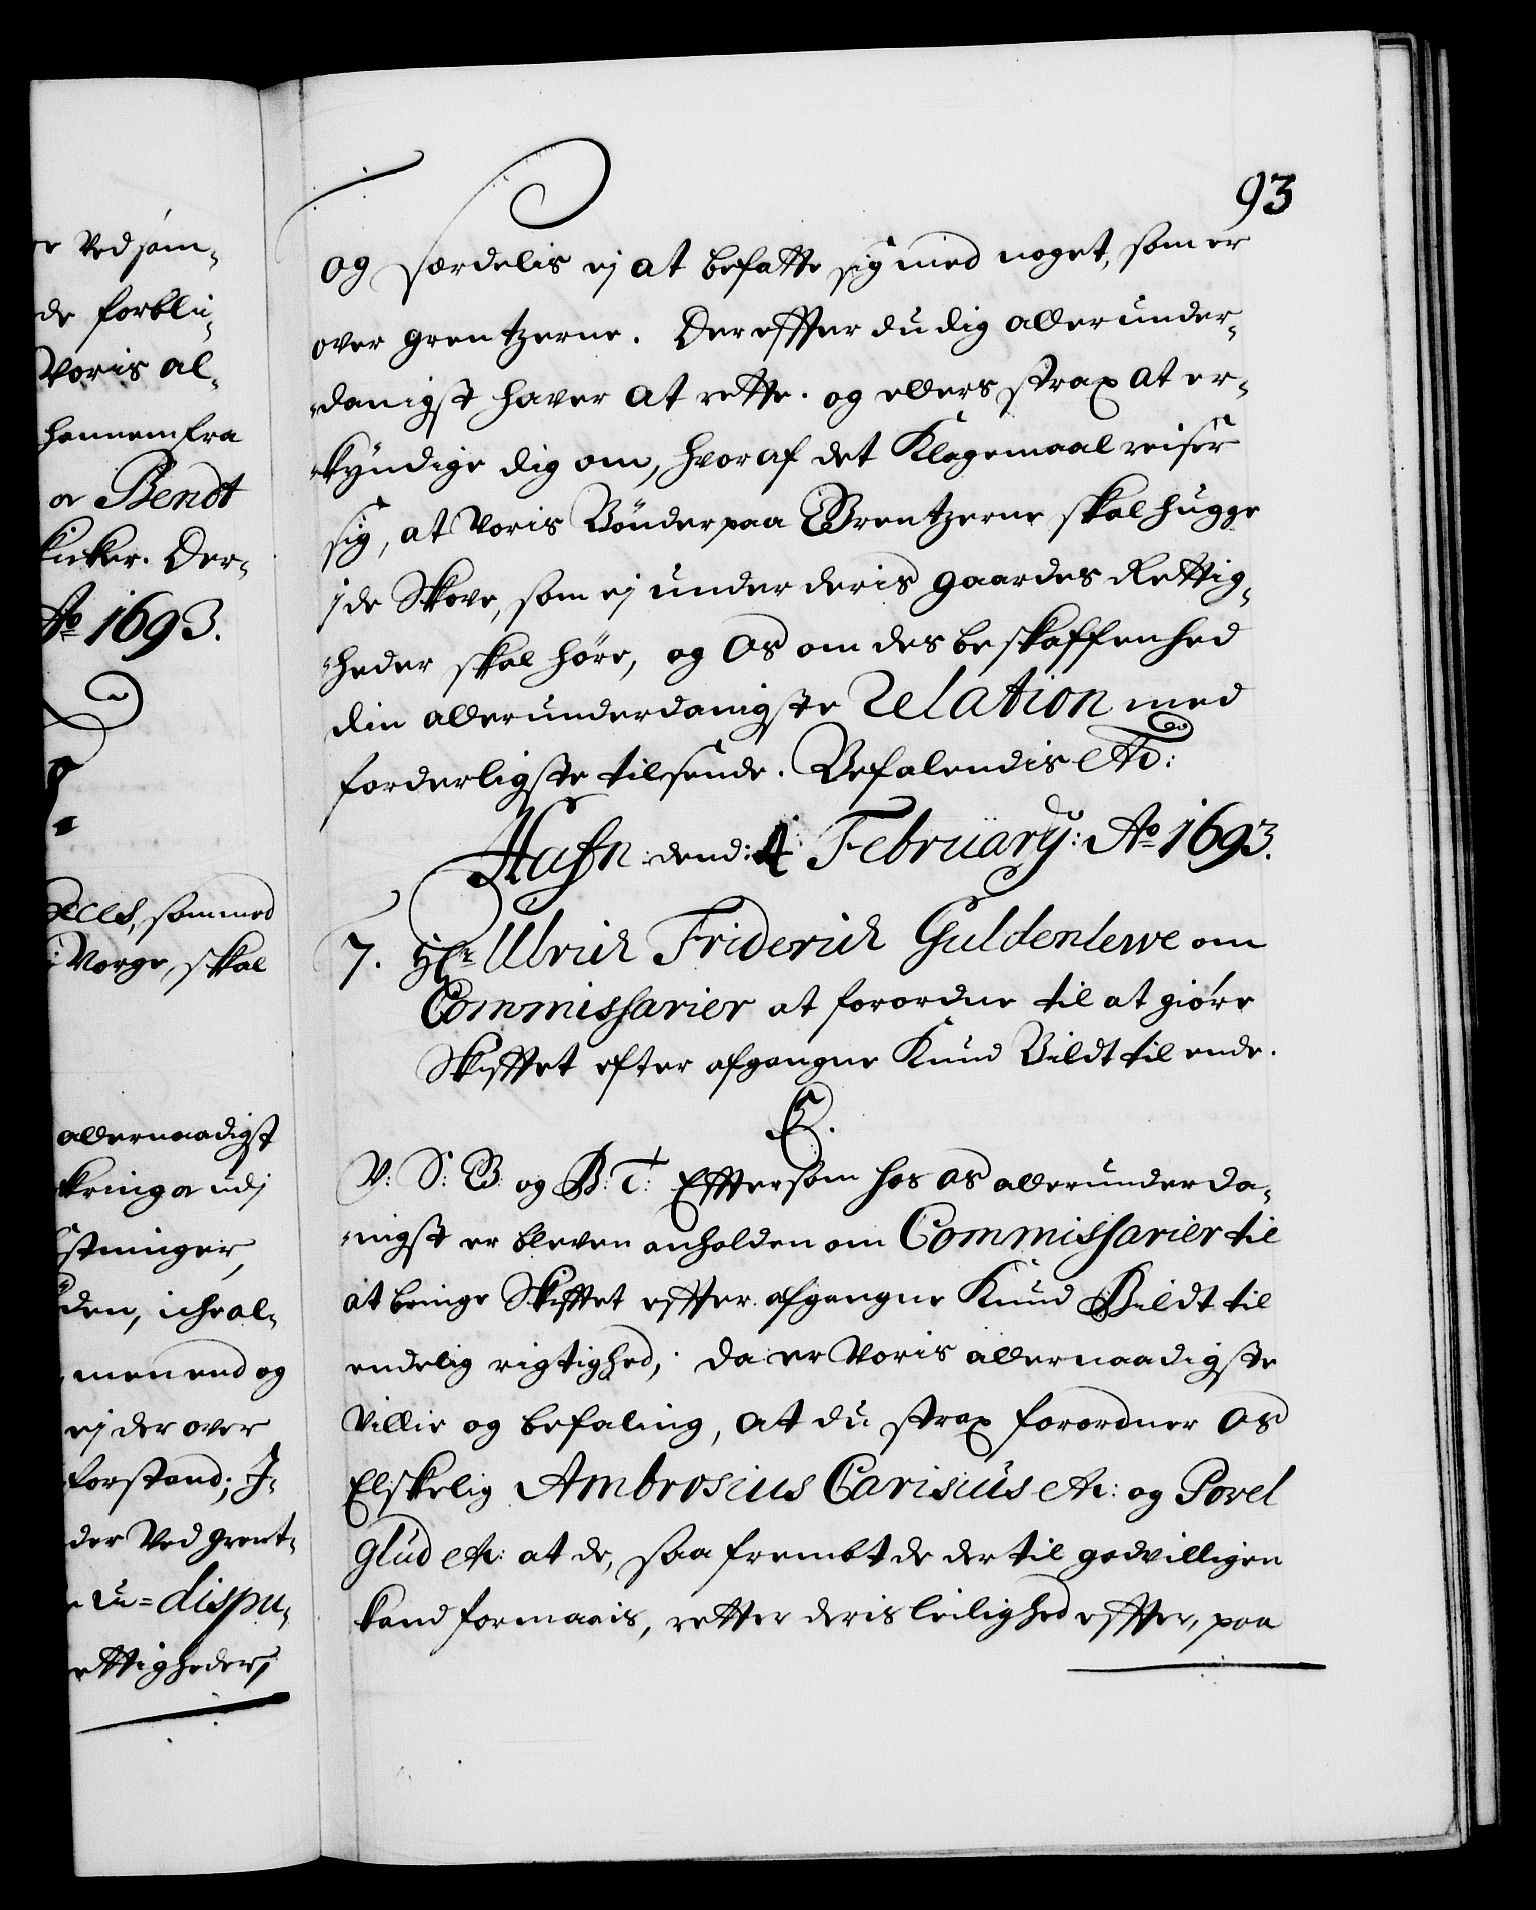 93
og særdelis ej at befatte sig med noget, som er
over grentzerne. Dereffter du dig allerunder-
danigst haver at rette. og ellers strax at er-
kyndige dig om, hvoraf det Klagemaal reiser
sig, at Voris Bønder paa Grentzerne skal hugge
j de Skove, som ej under deris gaardes Rettig-
heder skal høre, og Os om des beskaffenhed
din allerunderdanigste Relation med
forderligste tilsende. Befalendis etc:
Hafn: dend: 4 February: Ao 1693.
7. Hr Ulrich Friderich Guldenlewe om
Commissarier at forordne til at giøre
Skifftet efter afgangne Knud Bildt til ende.
C.
V: S: G: og B: T: Efftersom hos os allerunderda-
nigst er bleven anholden om Commissarier til
at bringe Skifftet effter afgangne Knud Bildt til
endelig rigtighed, da er Voris allernaadigste
Villie og befaling, at du strax forordner Os
Elskelig Ambrosius Carisius etc: og Povel
Glud etc: at de, saa frembt de der til godvilligen
kand formaais, retter deris leilighed effter, paa
r Ved sam-
de forbli-
Voris al-
hannem fra
or Bendt
kicker. Der-
Ao 1693.
som med
i Norge, skal
allernaadigst
kring or udj
stninger,
den, iche al-
men end og
ej der over
forstand; J-
der Ved grent-
u-dispu-
ettigheder,